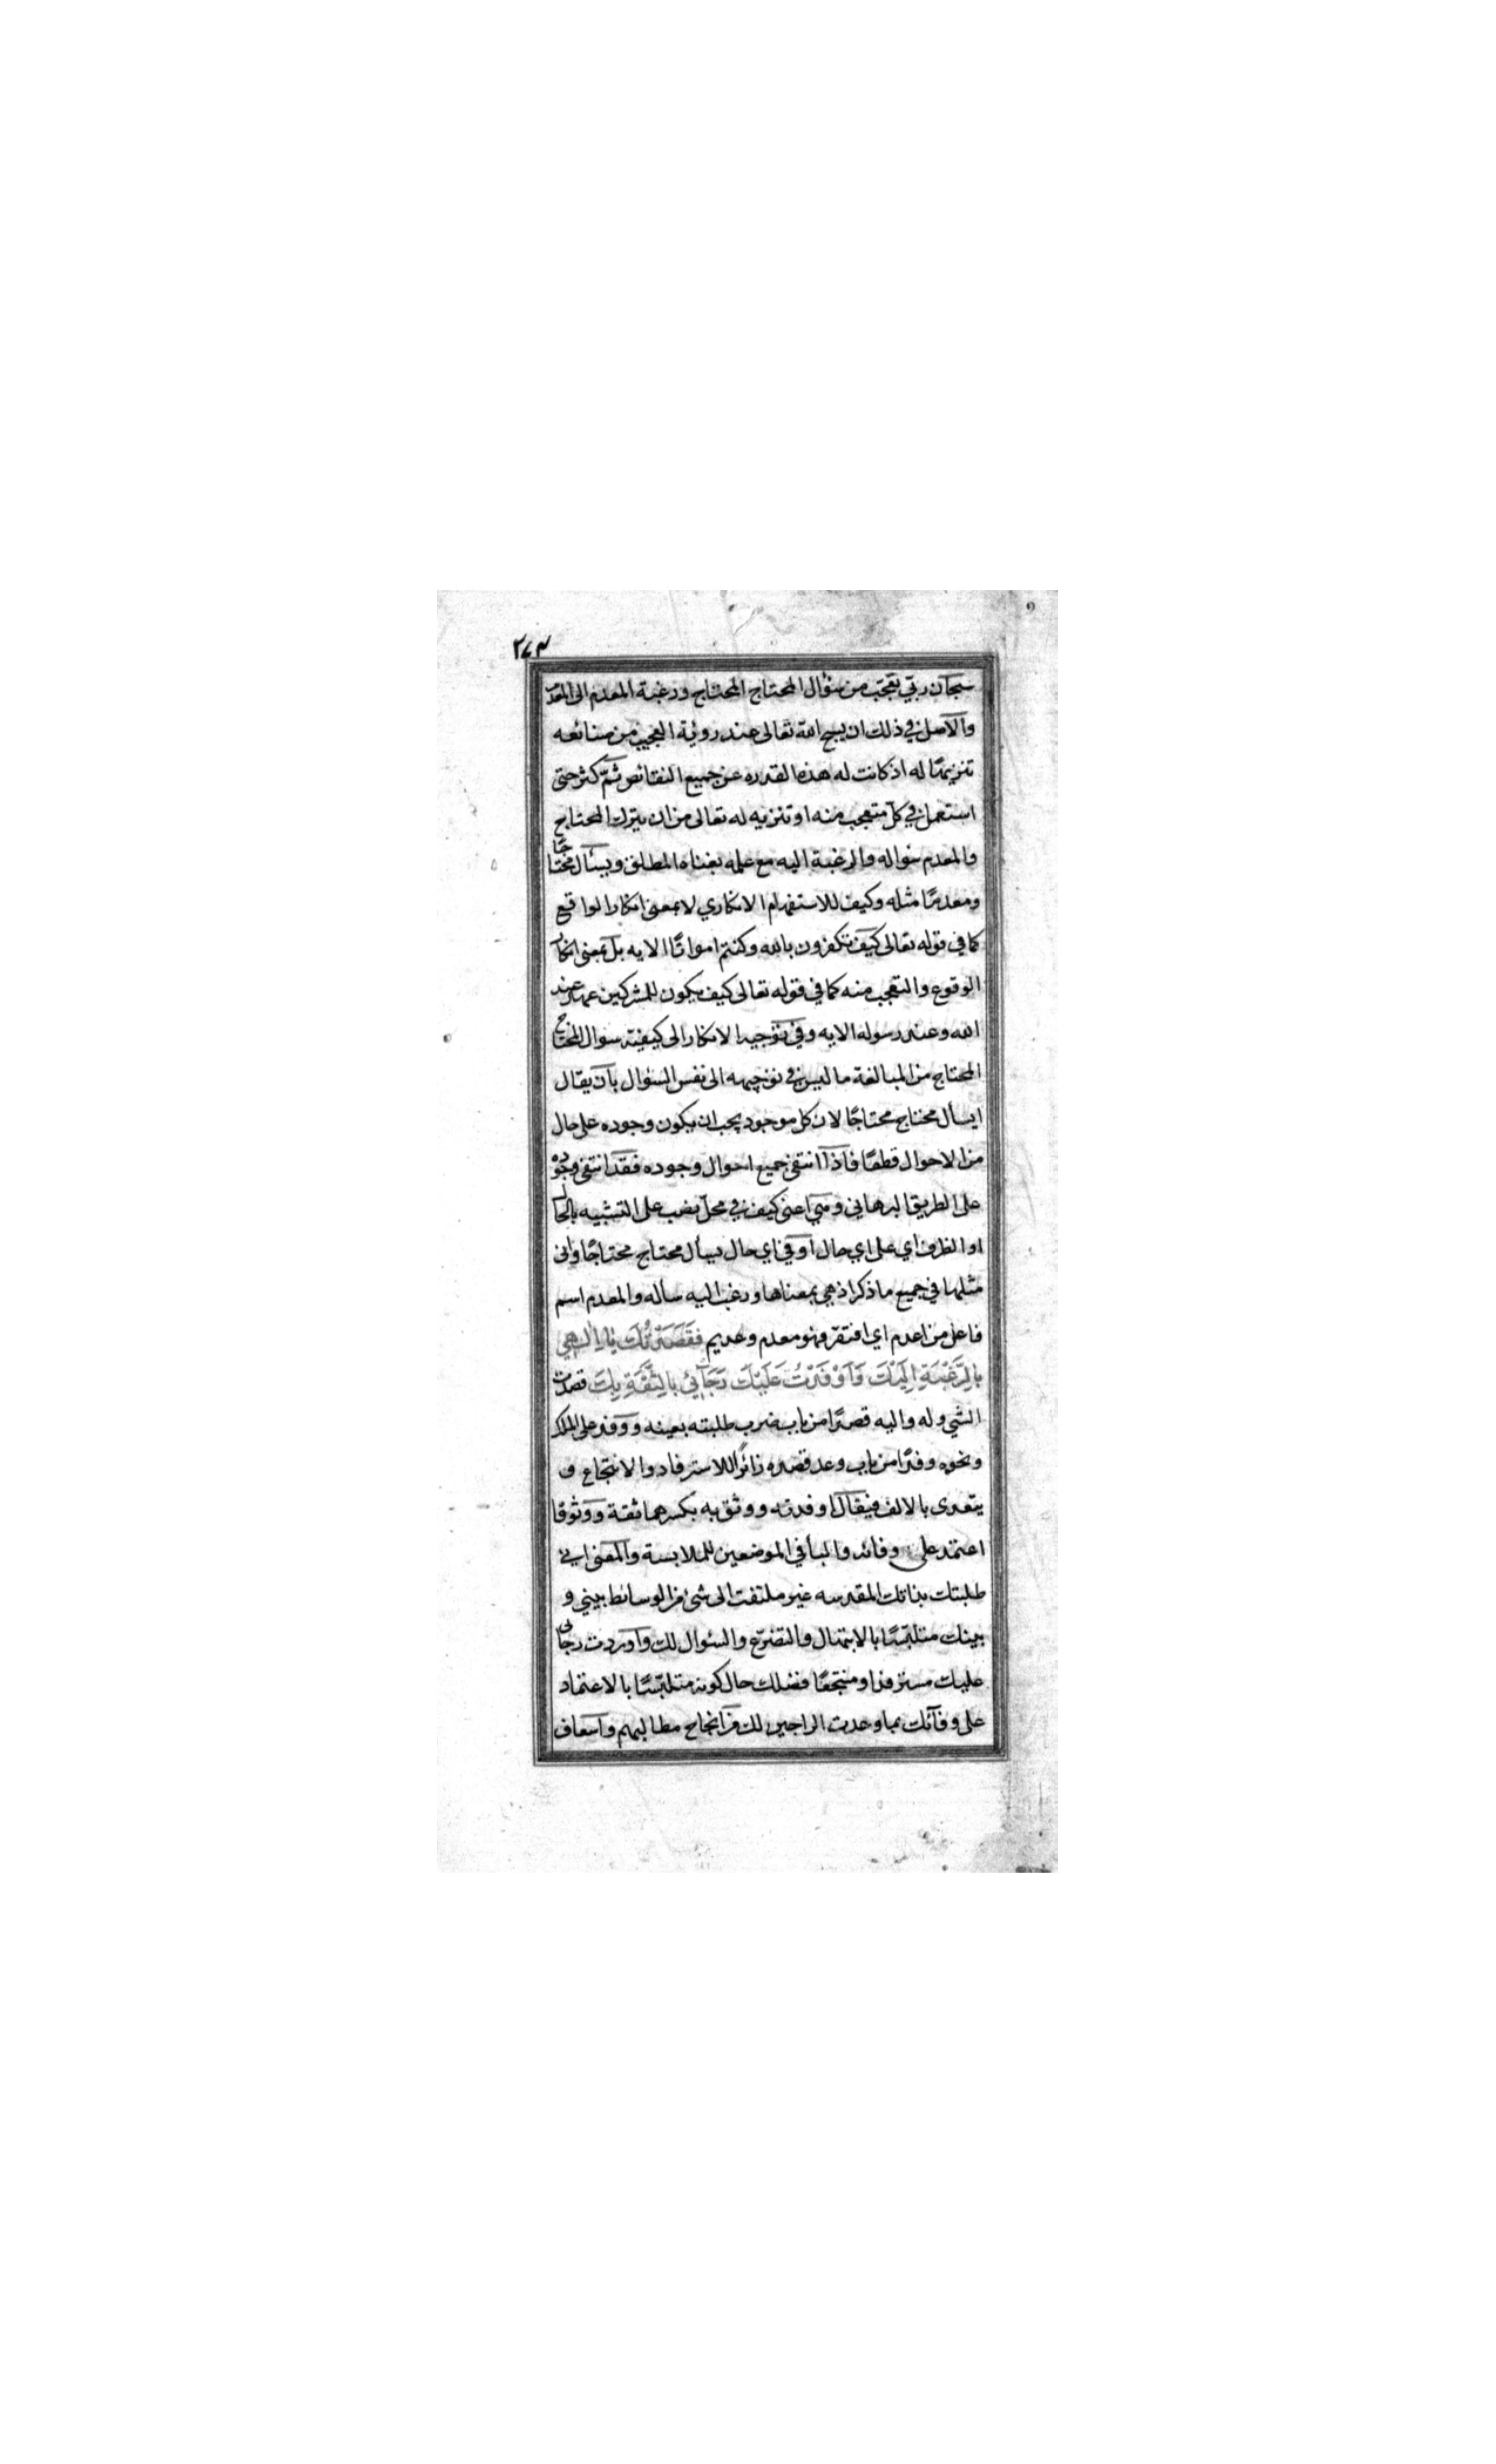 ٢٧٣
سبحان ربي تعجّب من سؤال المحتاج المحتاج ورغبة المعدم الى المعدم
والاصل في ذلك ان يسبح الله تعالى عند رؤية العجيب من صنائعه
تنزيهًا له اذ كانت له هذه القدره عن جميع النقائص ثمّ كثر حتى
استعمل في كلّ متعجب منه او تنزيه له تعالى من ان يترك المحتاج
والمعدم سؤاله والرغبة اليه مع علمه بغناه المطلق ويسأل محتاجًا
ومعدمًا مثله وكيف للاستفهام الانكاري لا بمعنى انكار الواقع
كما في قوله تعالى كيف تكفرون بالله وكنتم امواتًا الايه بل بمعنى انكار
الوقوع والتعجب منه كما في قوله تعالى كيف يكون للمشركين عهد عند
الله وعند رسوله الايه وفي توجيه الانكار الى كيفية سوال المحتاج
المحتاج من المبالغة ما ليس في توجيهه الى نفس السؤال بان يقال
ايسأل محتاج محتاجًا لان كل موجود يجب ان يكون وجوده على حال
من الاحوال قطعًا فاذا انتفى جميع احوال وجوده فقد انتفى وجوده
على الطريق البرهاني وهي اعنى كيف في محلّ نصب على التشبيه بالحال
او الظرف اي على اي حال او في اي حال يسأل محتاج محتاجًا وانى
مثلها في جميع ما ذكر اذ هي بمعناها ورغب اليه سأله والمعدم اسم
فاعل من اعدم اي افتقر فهو معدم وعديم فَقَصَدْتُكَ يٰا اِلٰهي
بِالرَّغْبَةِ اِلَيْكَ وَاَوْفَدْتُ عَلَيْكَ رَجَآئي بِالثِّقَةِ بِكَ قصدت
الشي وله واليه قصدًا من باب ضرب طلبته بعينه ووفد على الملك
ونحوه وفدًا من باب وعد قصده زائرًا للاسترفاد والانتجاع و
يتعدى بالالف فيقال اوفدته ووثق به بكسرهما ثقة ووثوقا
اعتمد على وفائه والبأ في الموضعين للملابسة والمعنى اي
طلبتك بذاتك المقدسه غير ملتفت الى شئ من الوسائط بيني و
بينك متلبّسًا بالابتهال والتضرّع والسئوال لك واوردت رجائي
عليك مسترفدا ومنتجعًا فضلك حال كونه متلبّسًا بالاعتماد
على وفآئك بما وعدت الراجين لك من انجاح مطالبهم واسعاف